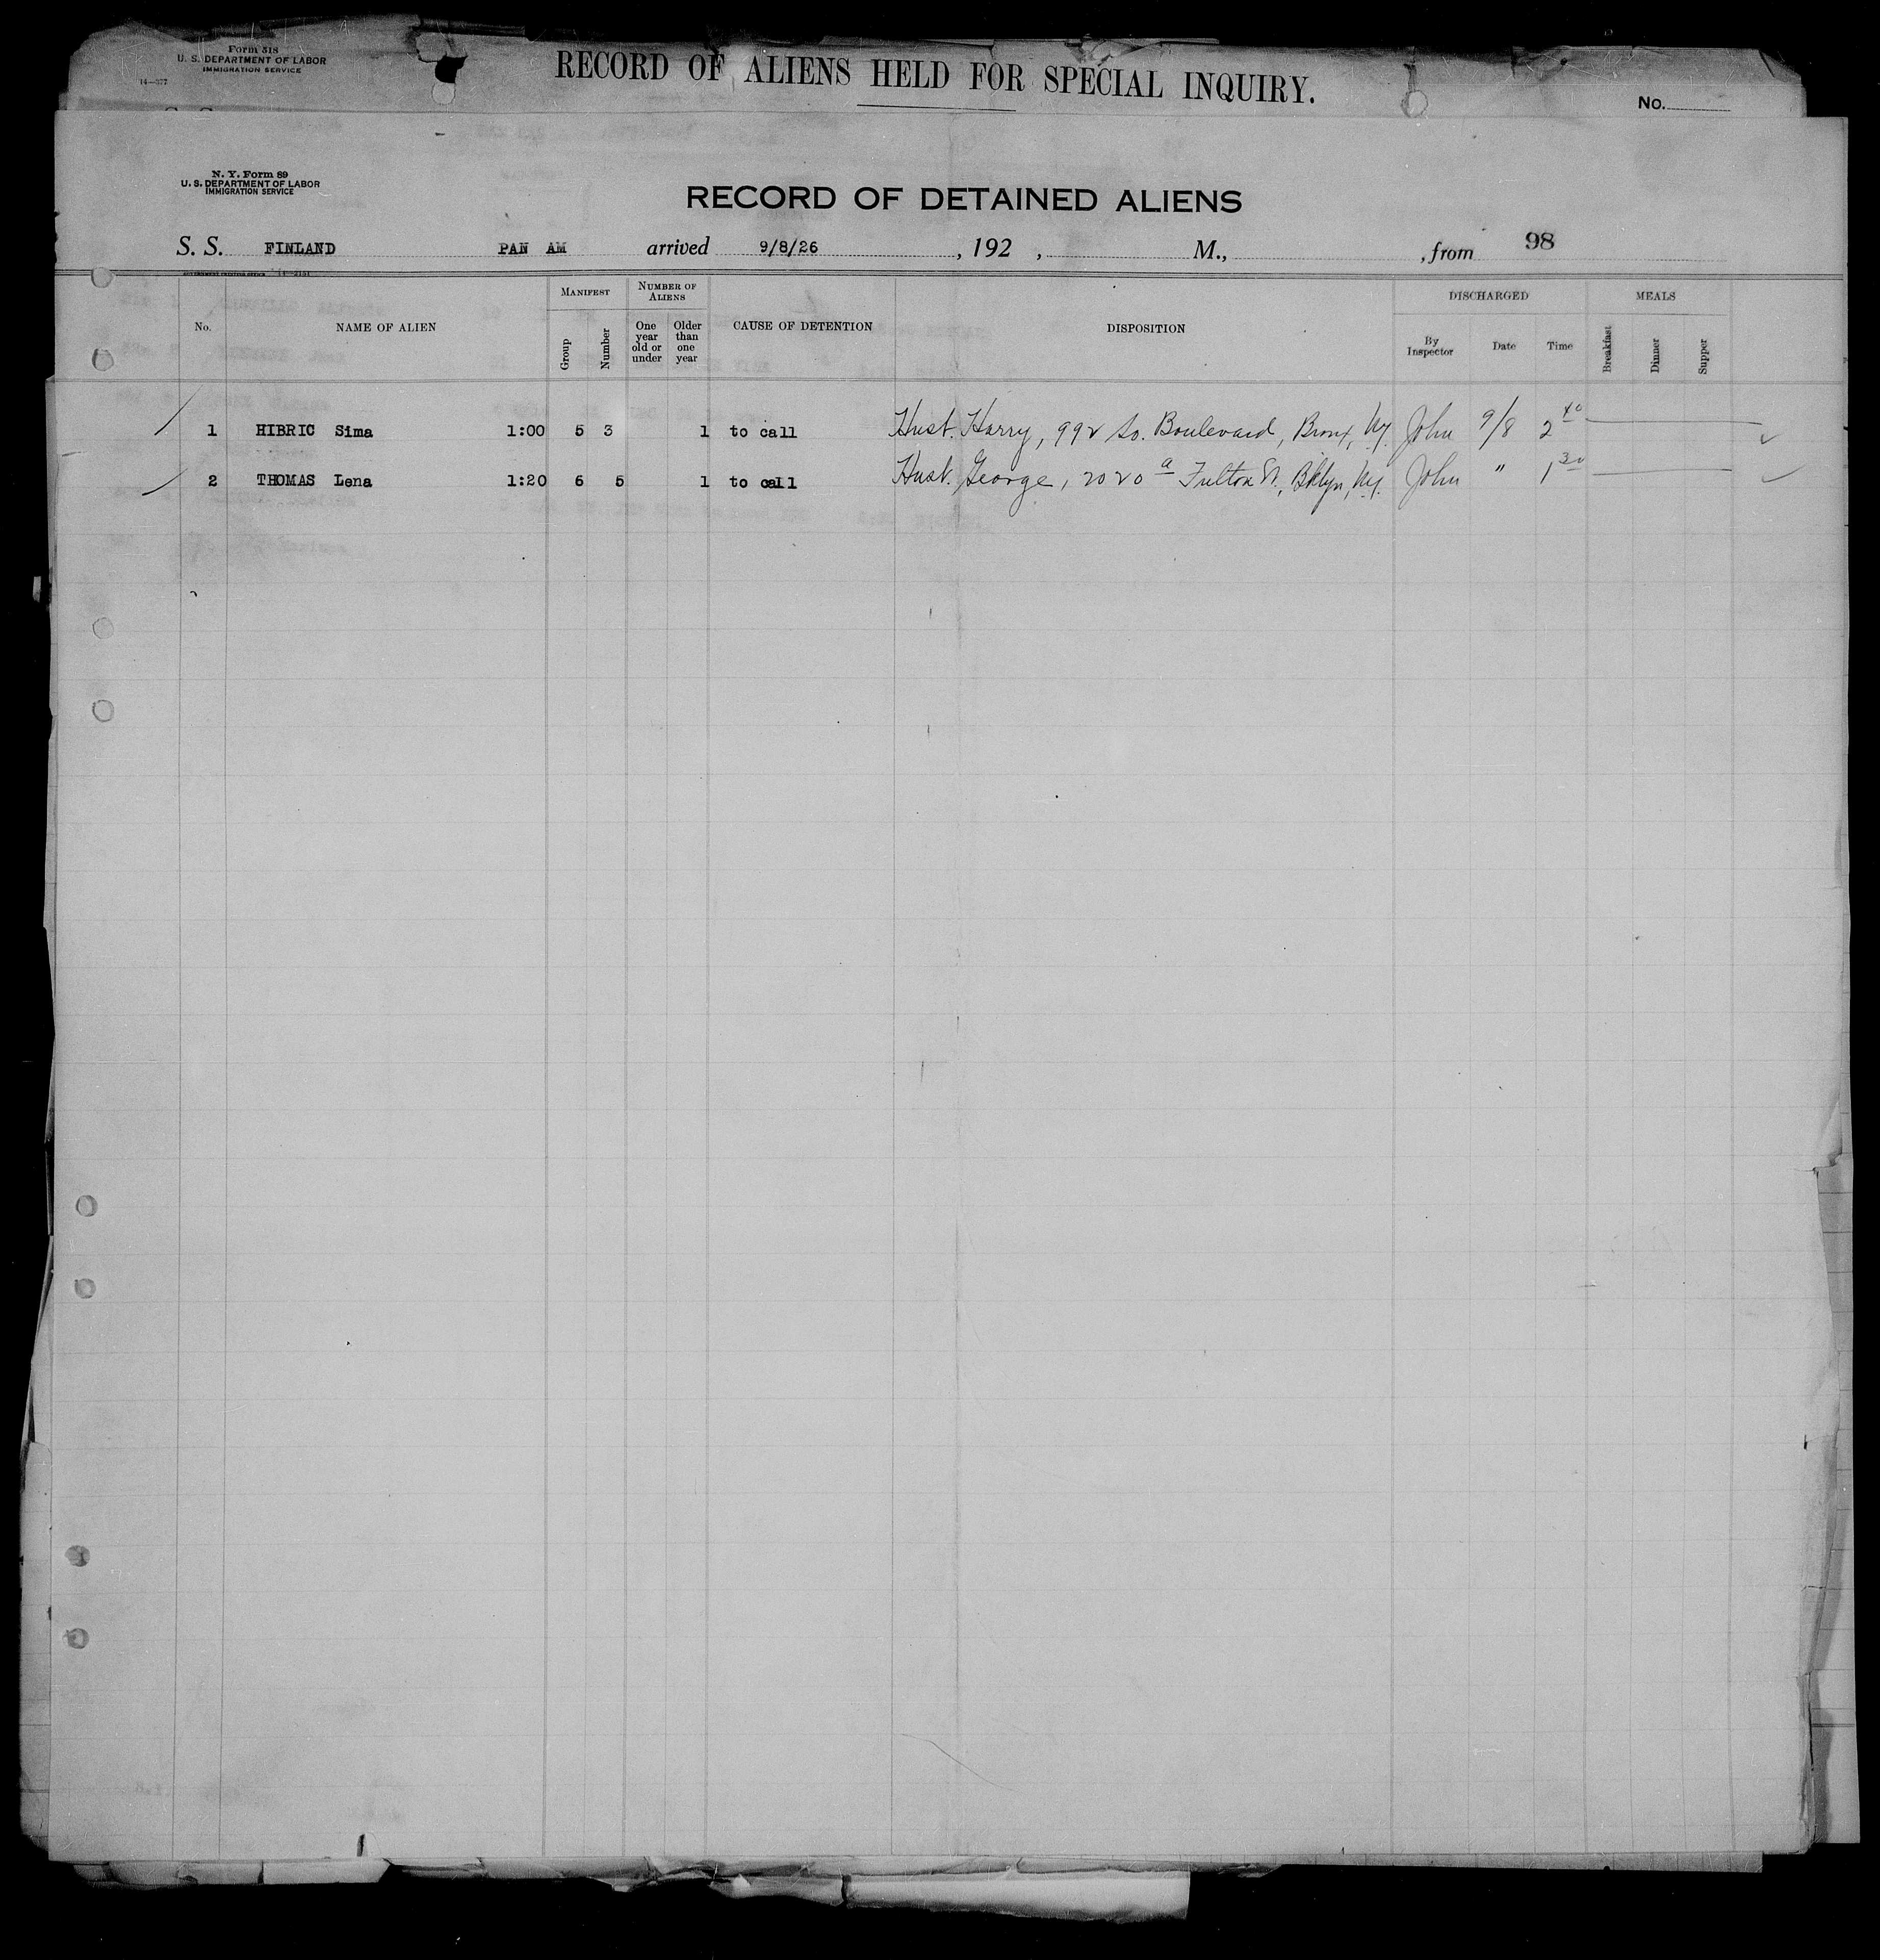 Form 518
U. S. DEPARTMENT OF LABOR
IMMIGRATION SERVICE
14—377
RECORD OF ALIENS HELD FOR SPECIAL INQUIRY.
No.
N. Y. Form 89
U. S. DEPARTMENT OF LABOR
IMMIGRATION SERVICE
RECORD OF DETAINED ALIENS
S. S. FINLAND PAN AM arrived 9/8/26, 192 , M., , from 98
GOVERNMENT PRINTING OFFICE
No. NAME OF ALIEN MANIFEST Group Number NUMBER OF ALIENS One year old or under Older than one year CAUSE OF DETENTION DISPOSITION DISCHARGED By Inspector Date Time MEALS Breakfast Dinner Supper
1 HIBRIC Sima 1:00 5 3 1 to call Hust. Harry, 992 So. Boulevard, Bronx, Ny. John 9/8 2 40
2 THOMAS Lena 1:20 6 5 1 to call Hust. George, 2020 a Fulton St., Bklyn, Ny. John " 1 30